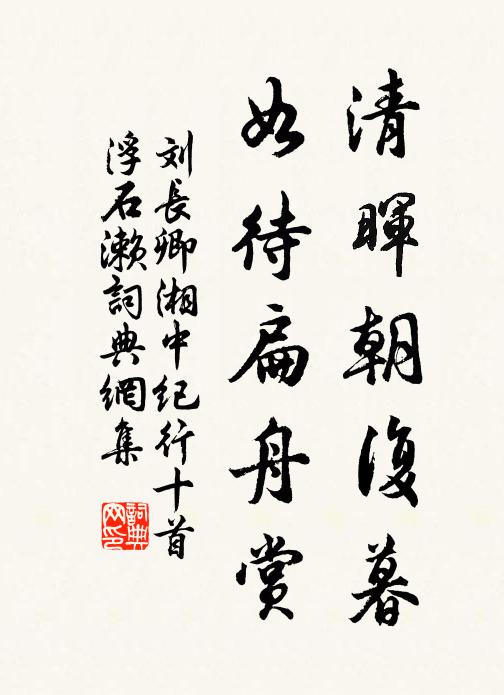 清暉朝復暮
如待扁舟賞
刘長卿湘中纪行十首
浮石濑詞典網集
詞典
网印